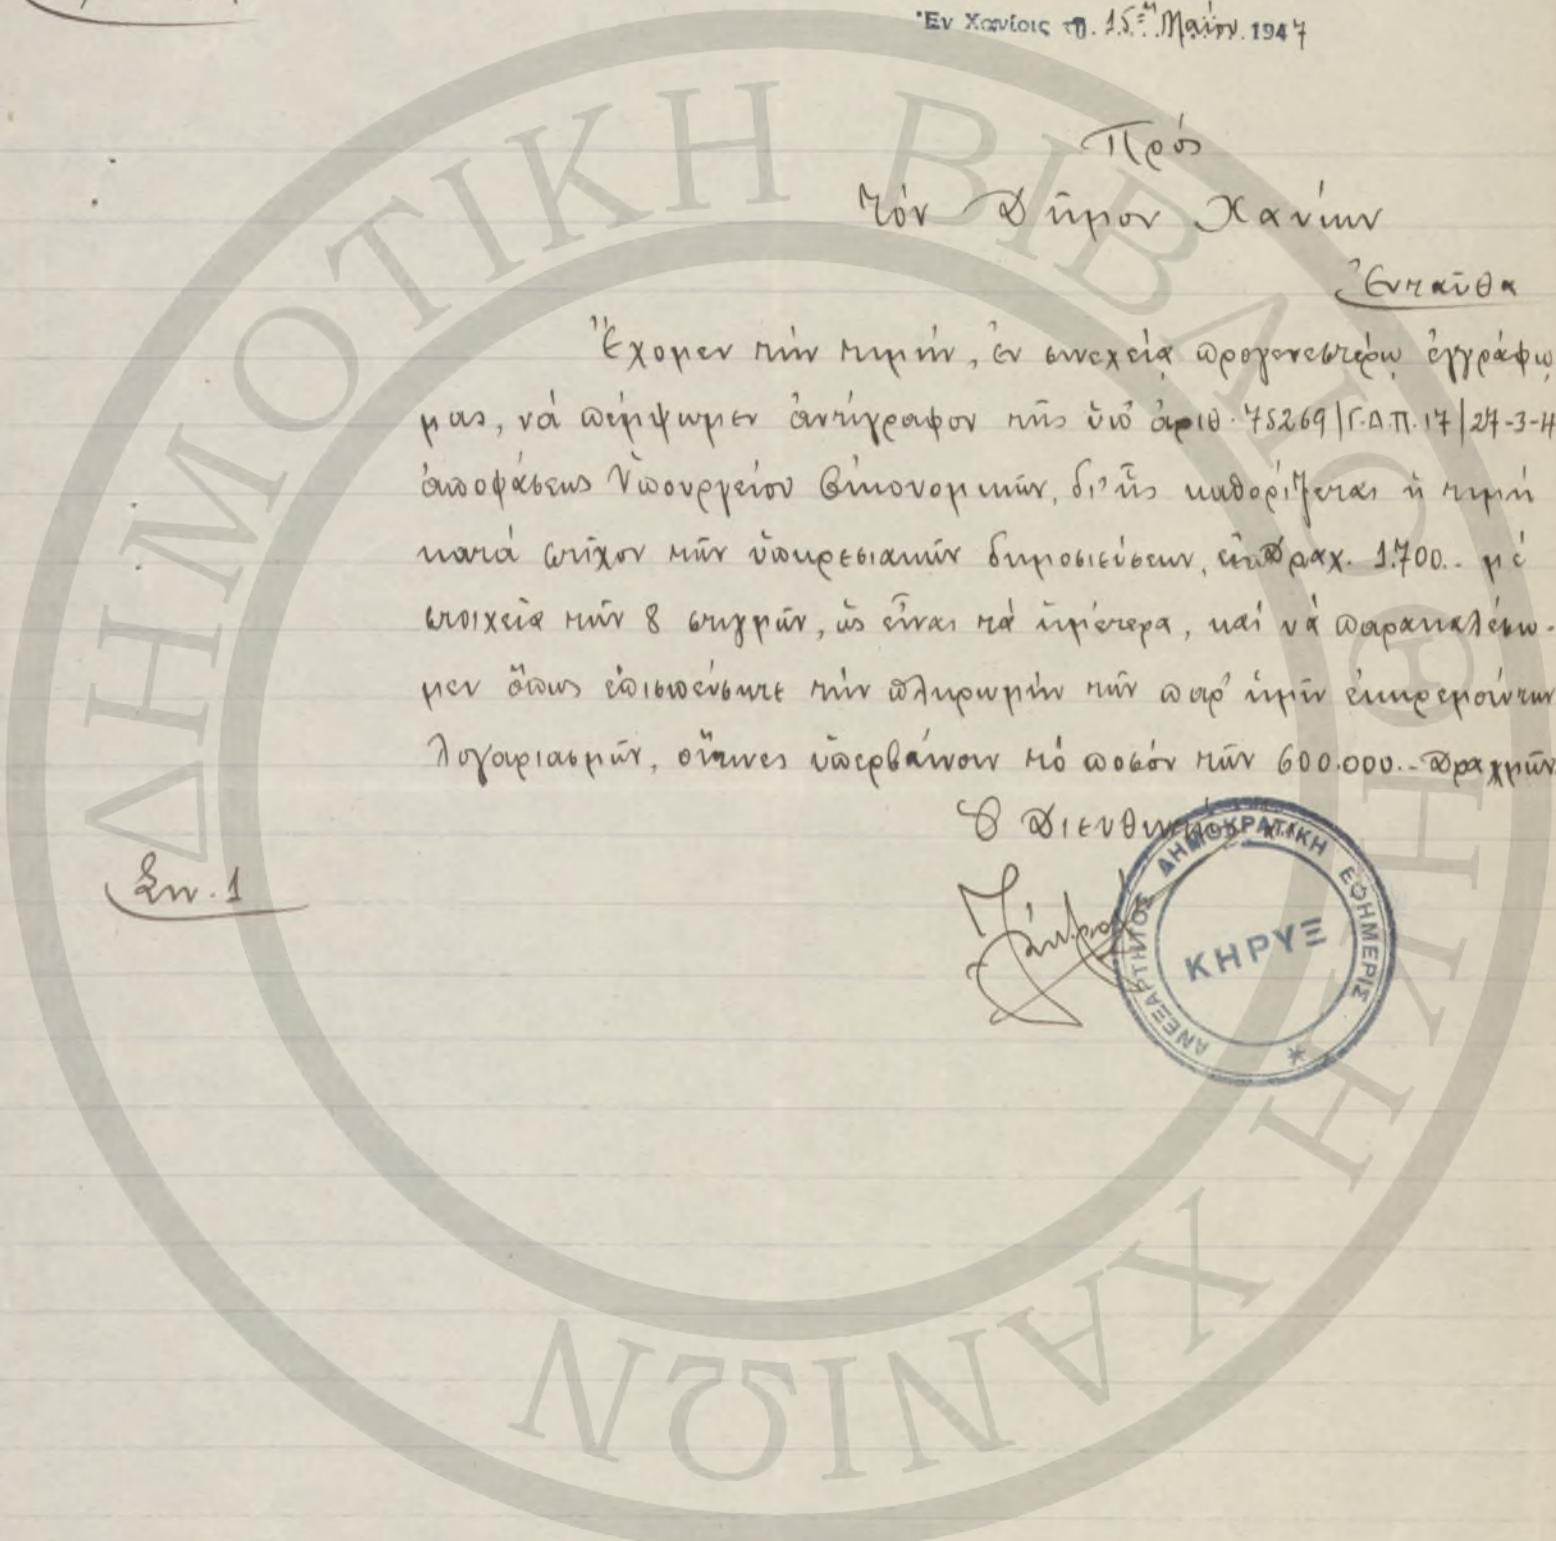 Ἐν Χανίοις τῇ 15ῃ Μαΐου 1947
Πρός
τόν Δῆμον Χανίων
Ἐνταῦθα
Ἔχομεν τήν τιμήν, ἐν συνεχείᾳ προγενεστέρῳ ἐγγράφῳ
μας, νά πέμψωμεν ἀντίγραφον τῆς ὑπ' ἀριθ. 75269/Γ.Δ.Π.17/27-3-4
ἀποφάσεως Ὑπουργείου Οἰκονομικῶν, δι' ἧς καθορίζεται ἡ τιμή
κατά στίχον τῶν ὑπηρεσιακῶν δημοσιεύσεων, εἰς Δραχ. 1.700.- μέ
στοιχεῖα τῶν 8 στιγμῶν, ὡς εἶναι τά ἡμέτερα, καί νά παρακαλέσω-
μεν ὅπως ἐπισπεύσητε τήν πληρωμήν τῶν παρ' ὑμῖν ἐκκρεμούντων
λογαριασμῶν, οἵτινες ὑπερβαίνουν τό ποσόν τῶν 600.000.- Δραχμῶν
Ὁ Διευθυντής
Συν. 1
ΑΝΕΞΑΡΤΗΤΟΣ ΔΗΜΟΚΡΑΤΙΚΗ ΕΦΗΜΕΡΙΣ
ΚΗΡΥΞ
ΔΗΜΟΤΙΚΗ ΒΙΒΛΙΟΘΗΚΗ ΧΑΝΙΩΝ